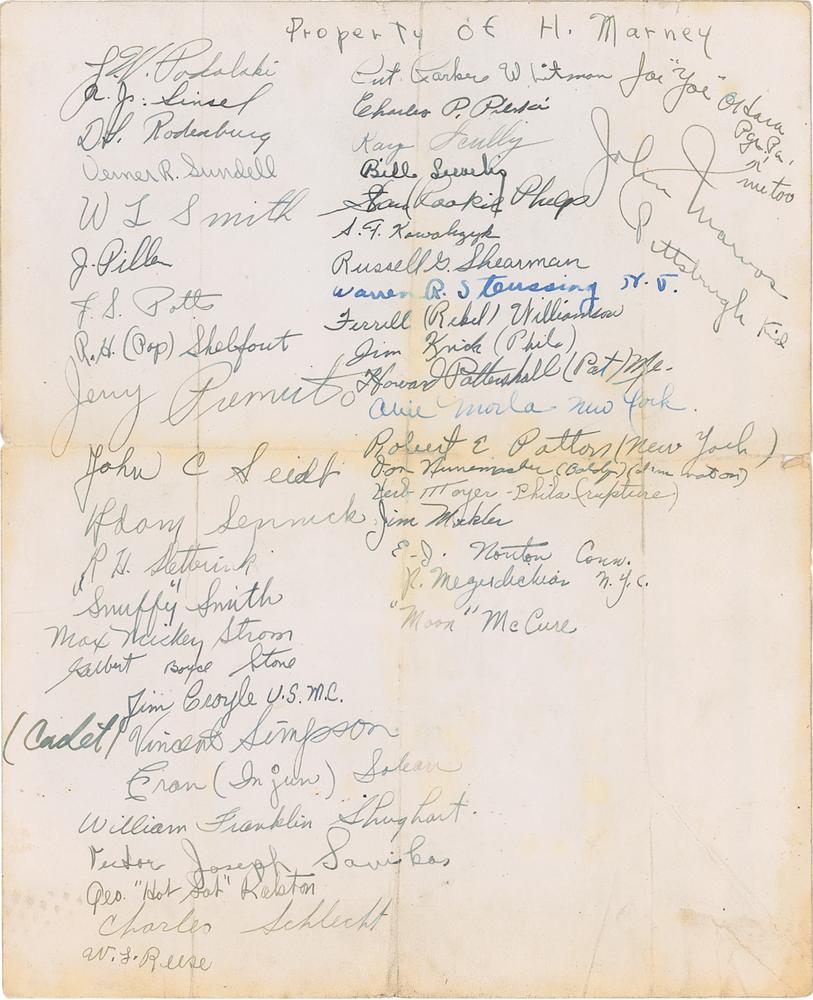 Property of H. Marney
J.W. Podolski
R. Jr. Sinsel
D.S. Rodenburg
Verner R. Sundell
W L Smith
J. Pille
F. S. Potts
R.H. (Pop) Shelfout
Jerry Premuto
John C Seidt
Sennick
R H.
"Snuffy" Smith
Max Mickey Strom
Gilbert Boyce Stone
Jim Croyle U.S.M.C.
(Cadet) Vincent Simpson
Eran (Injun)
William Franklin Shughart.
Victor Joseph Saviskas
Geo. "Hot Sot" Ralston
Charles Schlecht
W. L. Reese
Pvt. Parker W Litman
Charles P. Pilski
Kay Scully
Bill
Stan (Rookie) Phelps
S. T. Kowalczyk
Russell G. Shearman
Warren R. Steussing N. J.
Ferrell (Rebel) Williamson
Jim Krick (Phila)
Howard J Pattershall (Pat) Me.
Morla New York.
Robert E Patton (New York)
Don
Herb Moyer - Phila (rupture)
Jim Mekler
E. J. Norton Conn.
R. Megerdichian N.Y.C.
"Moon" McCure
Joe "Yoe" O'Hara
Pgh. Pa.
me too
John Marvos
Pittsburgh Kid